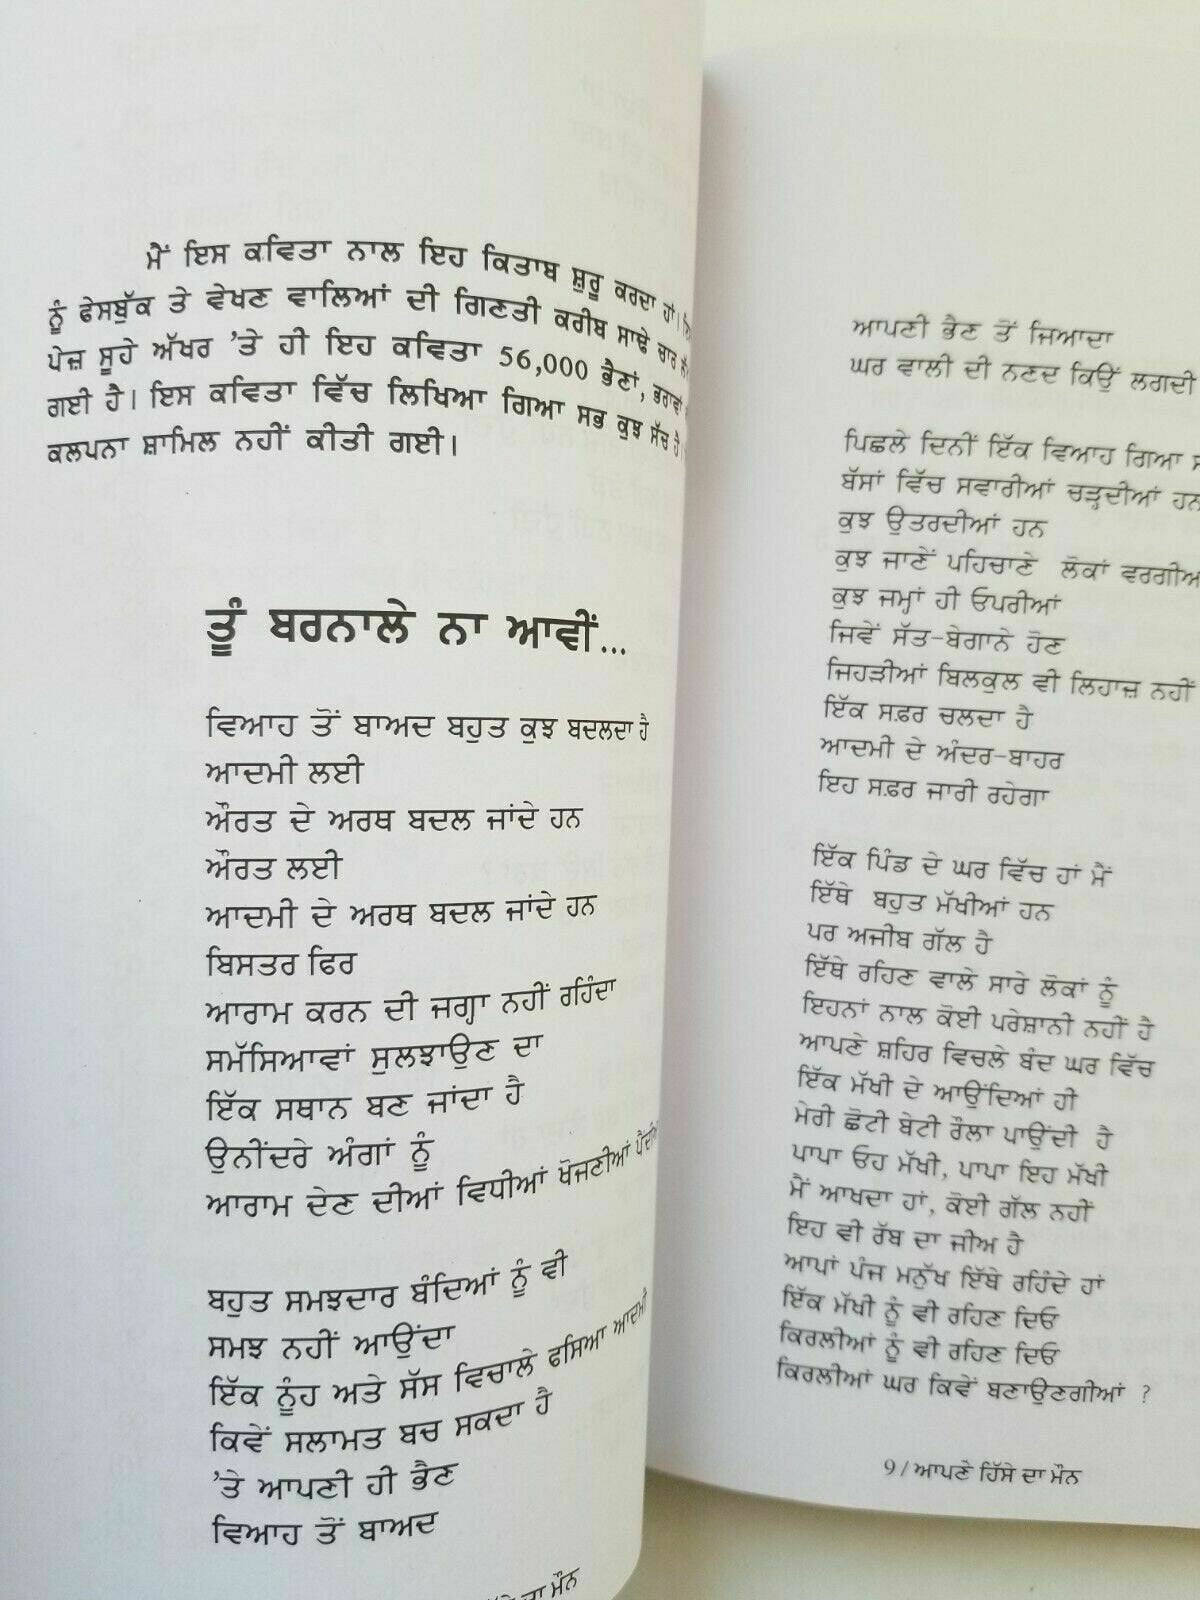 ਮੈਂ ਇਸ ਕਵਿਤਾ ਨਾਲ ਇਹ ਕਿਤਾਬ ਸ਼ੁਰੂ ਕਰਦਾ ਹਾਂ।
ਨੂੰ ਫੇਸਬੁੱਕ ਤੇ ਵੇਖਣ ਵਾਲਿਆਂ ਦੀ ਗਿਣਤੀ ਕਰੀਬ ਸਾਢੇ ਚਾਰ
ਪੇਜ਼ ਸੂਹੇ ਅੱਖਰ ’ਤੇ ਹੀ ਇਹ ਕਵਿਤਾ 56,000 ਭੈਣਾਂ, ਭਰਾਵਾਂ
ਗਈ ਹੈ। ਇਸ ਕਵਿਤਾ ਵਿੱਚ ਲਿਖਿਆ ਗਿਆ ਸਭ ਕੁਝ ਸੱਚ ਹੈ।
ਕਲਪਨਾ ਸ਼ਾਮਿਲ ਨਹੀਂ ਕੀਤੀ ਗਈ।
ਤੂੰ ਬਰਨਾਲੇ ਨਾ ਆਵੀਂ...
ਵਿਆਹ ਤੋਂ ਬਾਅਦ ਬਹੁਤ ਕੁਝ ਬਦਲਦਾ ਹੈ
ਆਦਮੀ ਲਈ
ਔਰਤ ਦੇ ਅਰਥ ਬਦਲ ਜਾਂਦੇ ਹਨ
ਔਰਤ ਲਈ
ਆਦਮੀ ਦੇ ਅਰਥ ਬਦਲ ਜਾਂਦੇ ਹਨ
ਬਿਸਤਰ ਫਿਰ
ਆਰਾਮ ਕਰਨ ਦੀ ਜਗ੍ਹਾ ਨਹੀਂ ਰਹਿੰਦਾ
ਸਮੱਸਿਆਵਾਂ ਸੁਲਝਾਉਣ ਦਾ
ਇੱਕ ਸਥਾਨ ਬਣ ਜਾਂਦਾ ਹੈ
ਉਨੀਂਦਰੇ ਅੰਗਾਂ ਨੂੰ
ਆਰਾਮ ਦੇਣ ਦੀਆਂ ਵਿਧੀਆਂ ਖੋਜਣੀਆਂ
ਬਹੁਤ ਸਮਝਦਾਰ ਬੰਦਿਆਂ ਨੂੰ ਵੀ
ਸਮਝ ਨਹੀਂ ਆਉਂਦਾ
ਇੱਕ ਨੂੰਹ ਅਤੇ ਸੱਸ ਵਿਚਾਲੇ ਫਸਿਆ ਆਦਮੀ
ਕਿਵੇਂ ਸਲਾਮਤ ਬਚ ਸਕਦਾ ਹੈ
’ਤੇ ਆਪਣੀ ਹੀ ਭੈਣ
ਵਿਆਹ ਤੋਂ ਬਾਅਦ
ਦਾ ਮੌਨ
ਆਪਣੀ ਭੈਣ ਤੋਂ ਜਿਆਦਾ
ਘਰ ਵਾਲੀ ਦੀ ਨਣਦ ਕਿਉਂ ਲਗਦੀ
ਪਿਛਲੇ ਦਿਨੀਂ ਇੱਕ ਵਿਆਹ ਗਿਆ
ਬੱਸਾਂ ਵਿੱਚ ਸਵਾਰੀਆਂ ਚੜ੍ਹਦੀਆਂ ਹਨ
ਕੁਝ ਉਤਰਦੀਆਂ ਹਨ
ਕੁਝ ਜਾਣੇਂ ਪਹਿਚਾਣੇ ਲੋਕਾਂ ਵਰਗੀਆਂ
ਕੁਝ ਜਮ੍ਹਾਂ ਹੀ ਓਪਰੀਆਂ
ਜਿਵੇਂ ਸੱਤ-ਬੇਗਾਨੇ ਹੋਣ
ਜਿਹੜੀਆਂ ਬਿਲਕੁਲ ਵੀ ਲਿਹਾਜ਼ ਨਹੀਂ
ਇੱਕ ਸਫ਼ਰ ਚਲਦਾ ਹੈ
ਆਦਮੀ ਦੇ ਅੰਦਰ-ਬਾਹਰ
ਇਹ ਸਫ਼ਰ ਜਾਰੀ ਰਹੇਗਾ
ਇੱਕ ਪਿੰਡ ਦੇ ਘਰ ਵਿੱਚ ਹਾਂ ਮੈਂ
ਇੱਥੇ ਬਹੁਤ ਮੱਖੀਆਂ ਹਨ
ਪਰ ਅਜੀਬ ਗੱਲ ਹੈ
ਇੱਥੇ ਰਹਿਣ ਵਾਲੇ ਸਾਰੇ ਲੋਕਾਂ ਨੂੰ
ਇਹਨਾਂ ਨਾਲ ਕੋਈ ਪਰੇਸ਼ਾਨੀ ਨਹੀਂ ਹੈ
ਆਪਣੇ ਸ਼ਹਿਰ ਵਿਚਲੇ ਬੰਦ ਘਰ ਵਿੱਚ
ਇੱਕ ਮੱਖੀ ਦੇ ਆਉਂਦਿਆਂ ਹੀ
ਮੇਰੀ ਛੋਟੀ ਬੇਟੀ ਰੌਲਾ ਪਾਉਂਦੀ ਹੈ
ਪਾਪਾ ਓਹ ਮੱਖੀ, ਪਾਪਾ ਇਹ ਮੱਖੀ
ਮੈਂ ਆਖਦਾ ਹਾਂ, ਕੋਈ ਗੱਲ ਨਹੀਂ
ਇਹ ਵੀ ਰੱਬ ਦਾ ਜੀਅ ਹੈ
ਆਪਾਂ ਪੰਜ ਮਨੁੱਖ ਇੱਥੇ ਰਹਿੰਦੇ ਹਾਂ
ਇੱਕ ਮੱਖੀ ਨੂੰ ਵੀ ਰਹਿਣ ਦਿਓ
ਕਿਰਲੀਆਂ ਨੂੰ ਵੀ ਰਹਿਣ ਦਿਓ
ਕਿਰਲੀਆਂ ਘਰ ਕਿਵੇਂ ਬਣਾਉਣਗੀਆਂ ?
9/ਆਪਣੇ ਹਿੱਸੇ ਦਾ ਮੌਨ